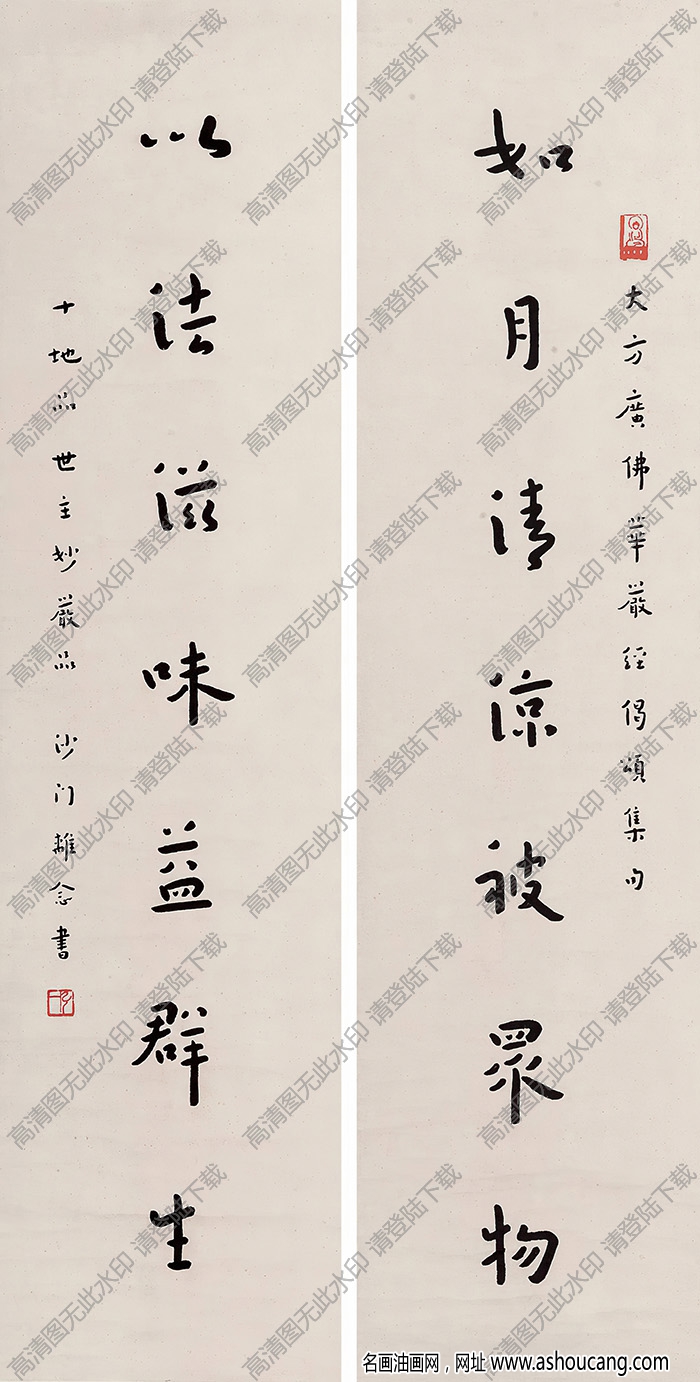 大方廣佛華嚴經偈頌集句
如月清涼被眾物
以法滋味益群生
十地品世主妙嚴品 沙门離念書
高清图无此水印 请登陆下载
名画油画网，网址 www.ashoucang.com